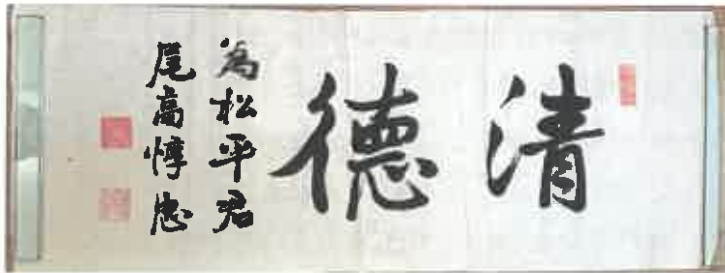 清德
為松平君
尾高惇忠